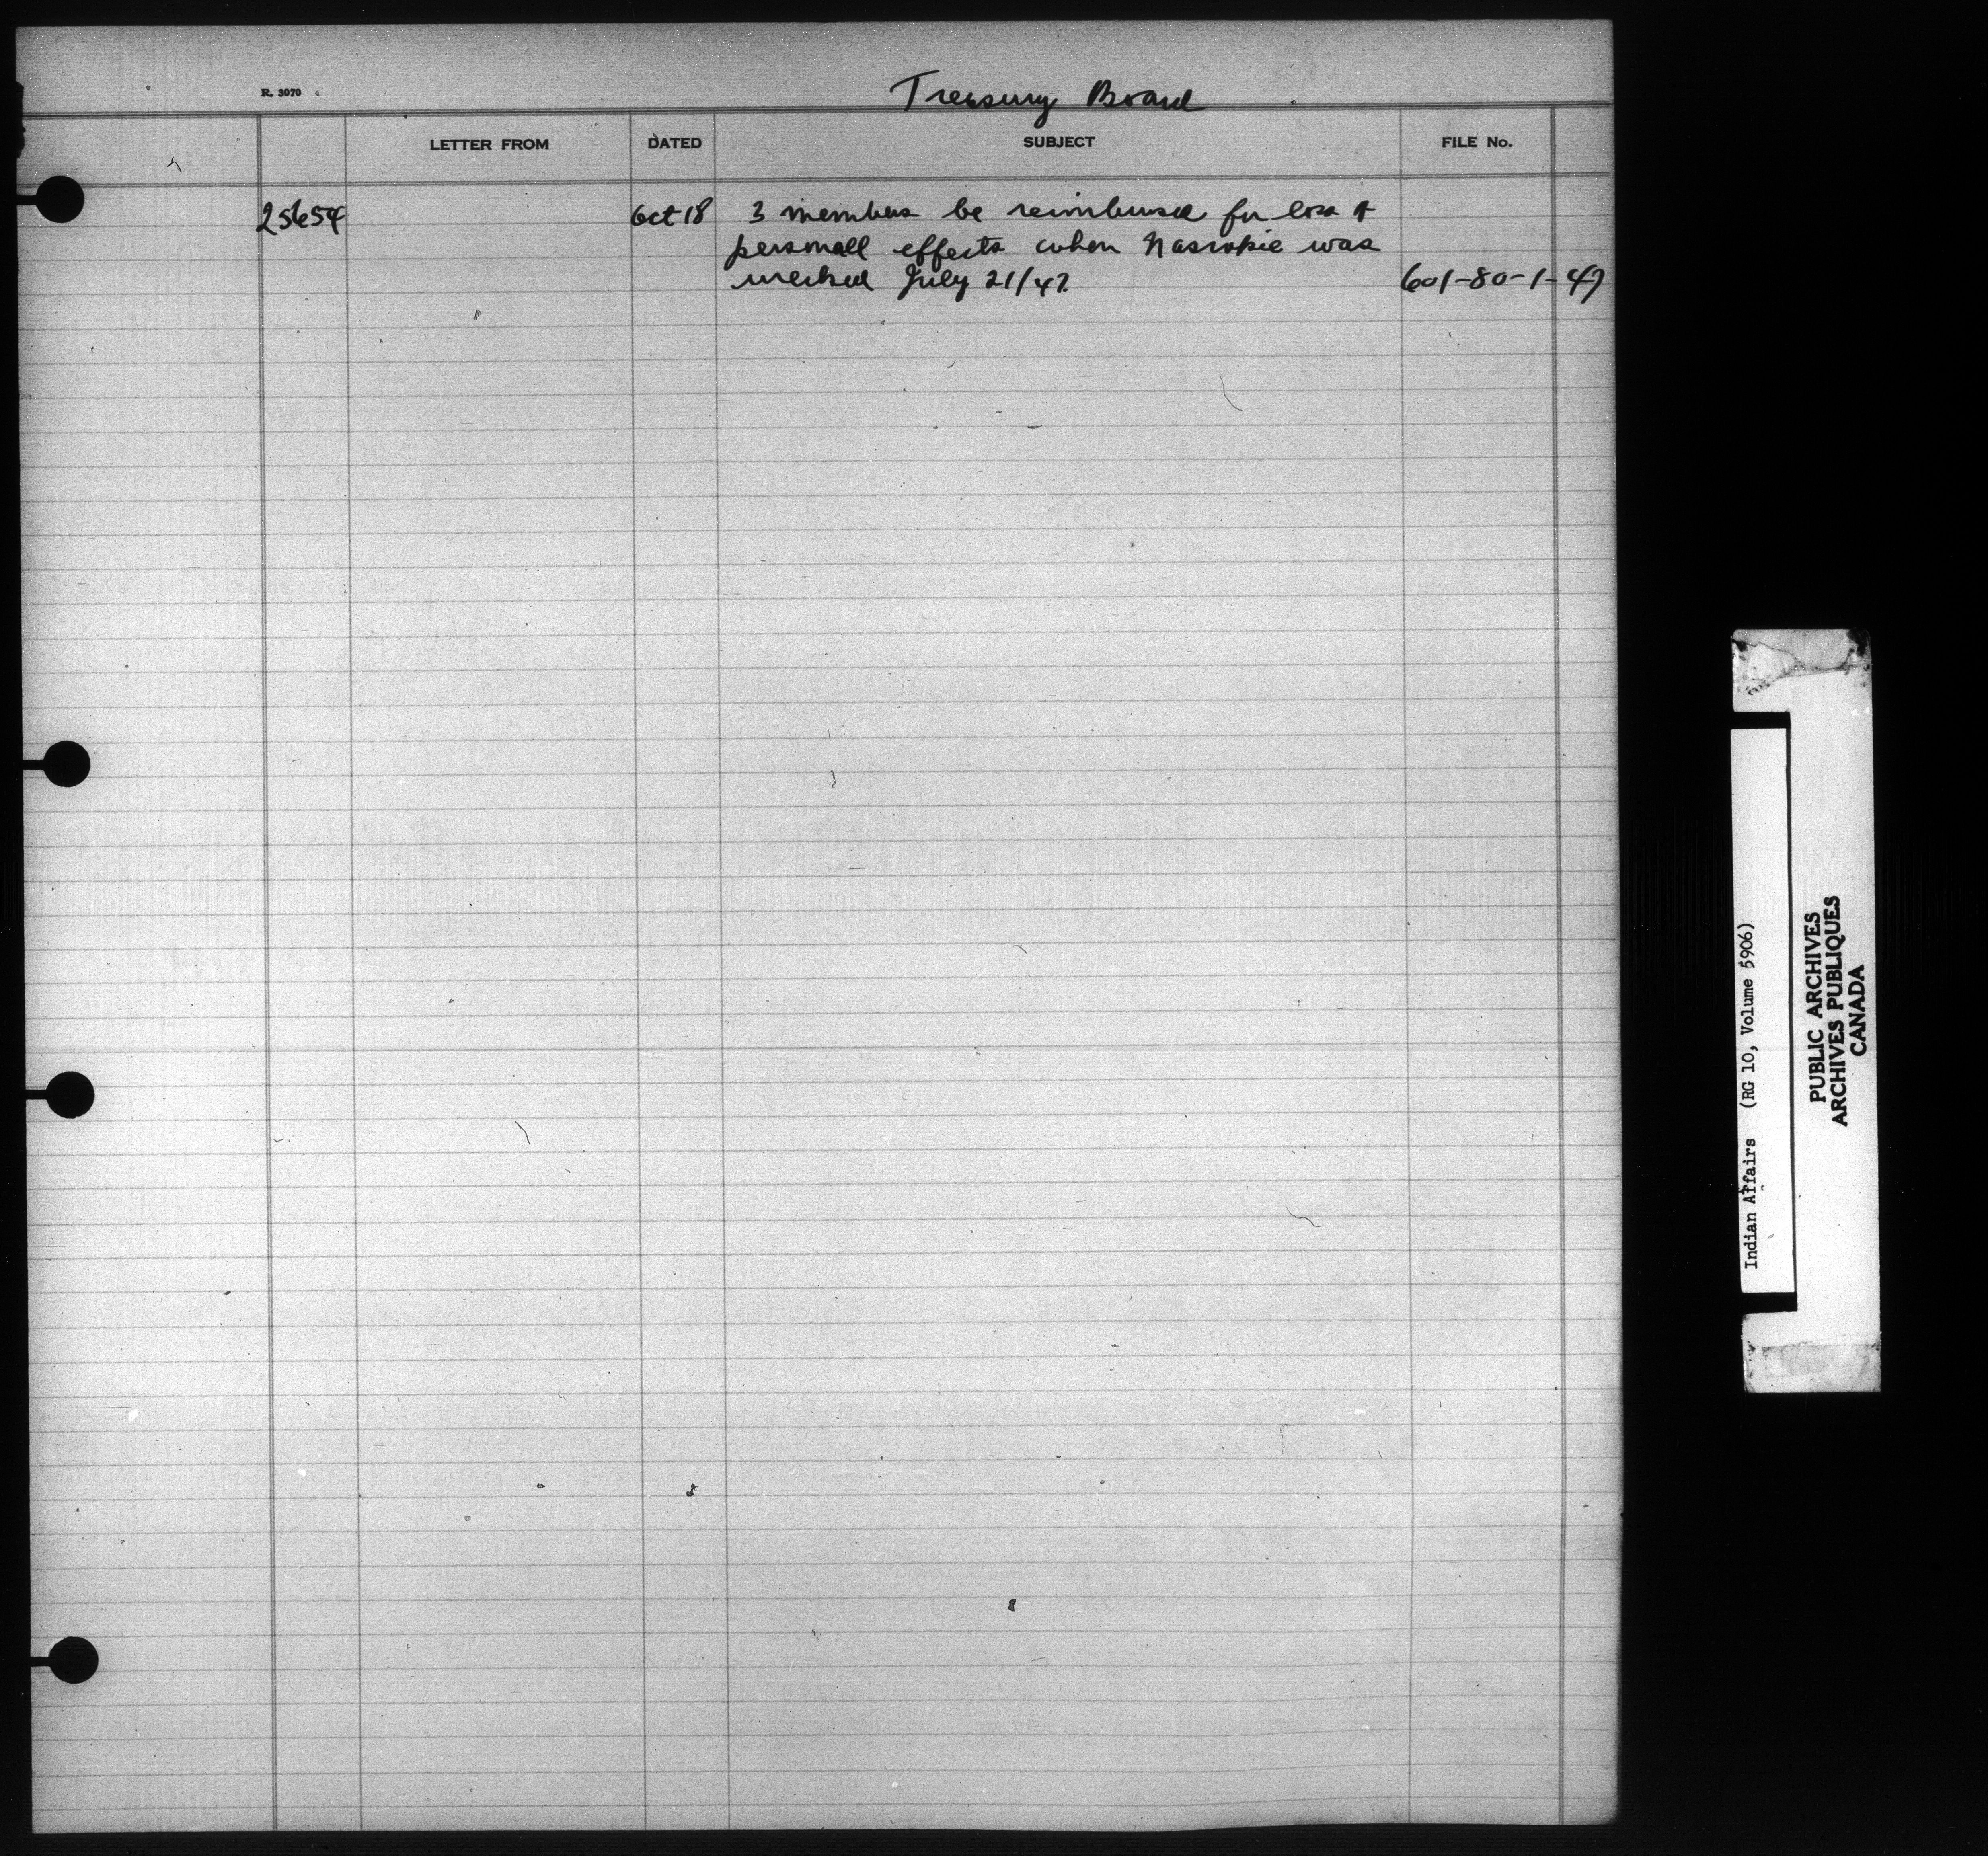 R. 3070
Treasury Board
LETTER FROM DATED SUBJECT FILE No.
25654 Oct 18 3 members be reimbursed for loss of
personall effects when Nascopie was
wrecked July 21/47. 601-80-1-47
Indian Affairs (RG 10, Volume 5906)
PUBLIC ARCHIVES
ARCHIVES PUBLIQUES
CANADA